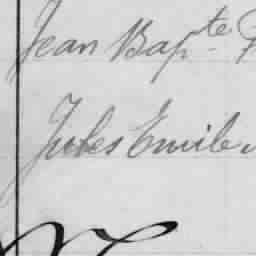 Jean Bapte
Jules Emile